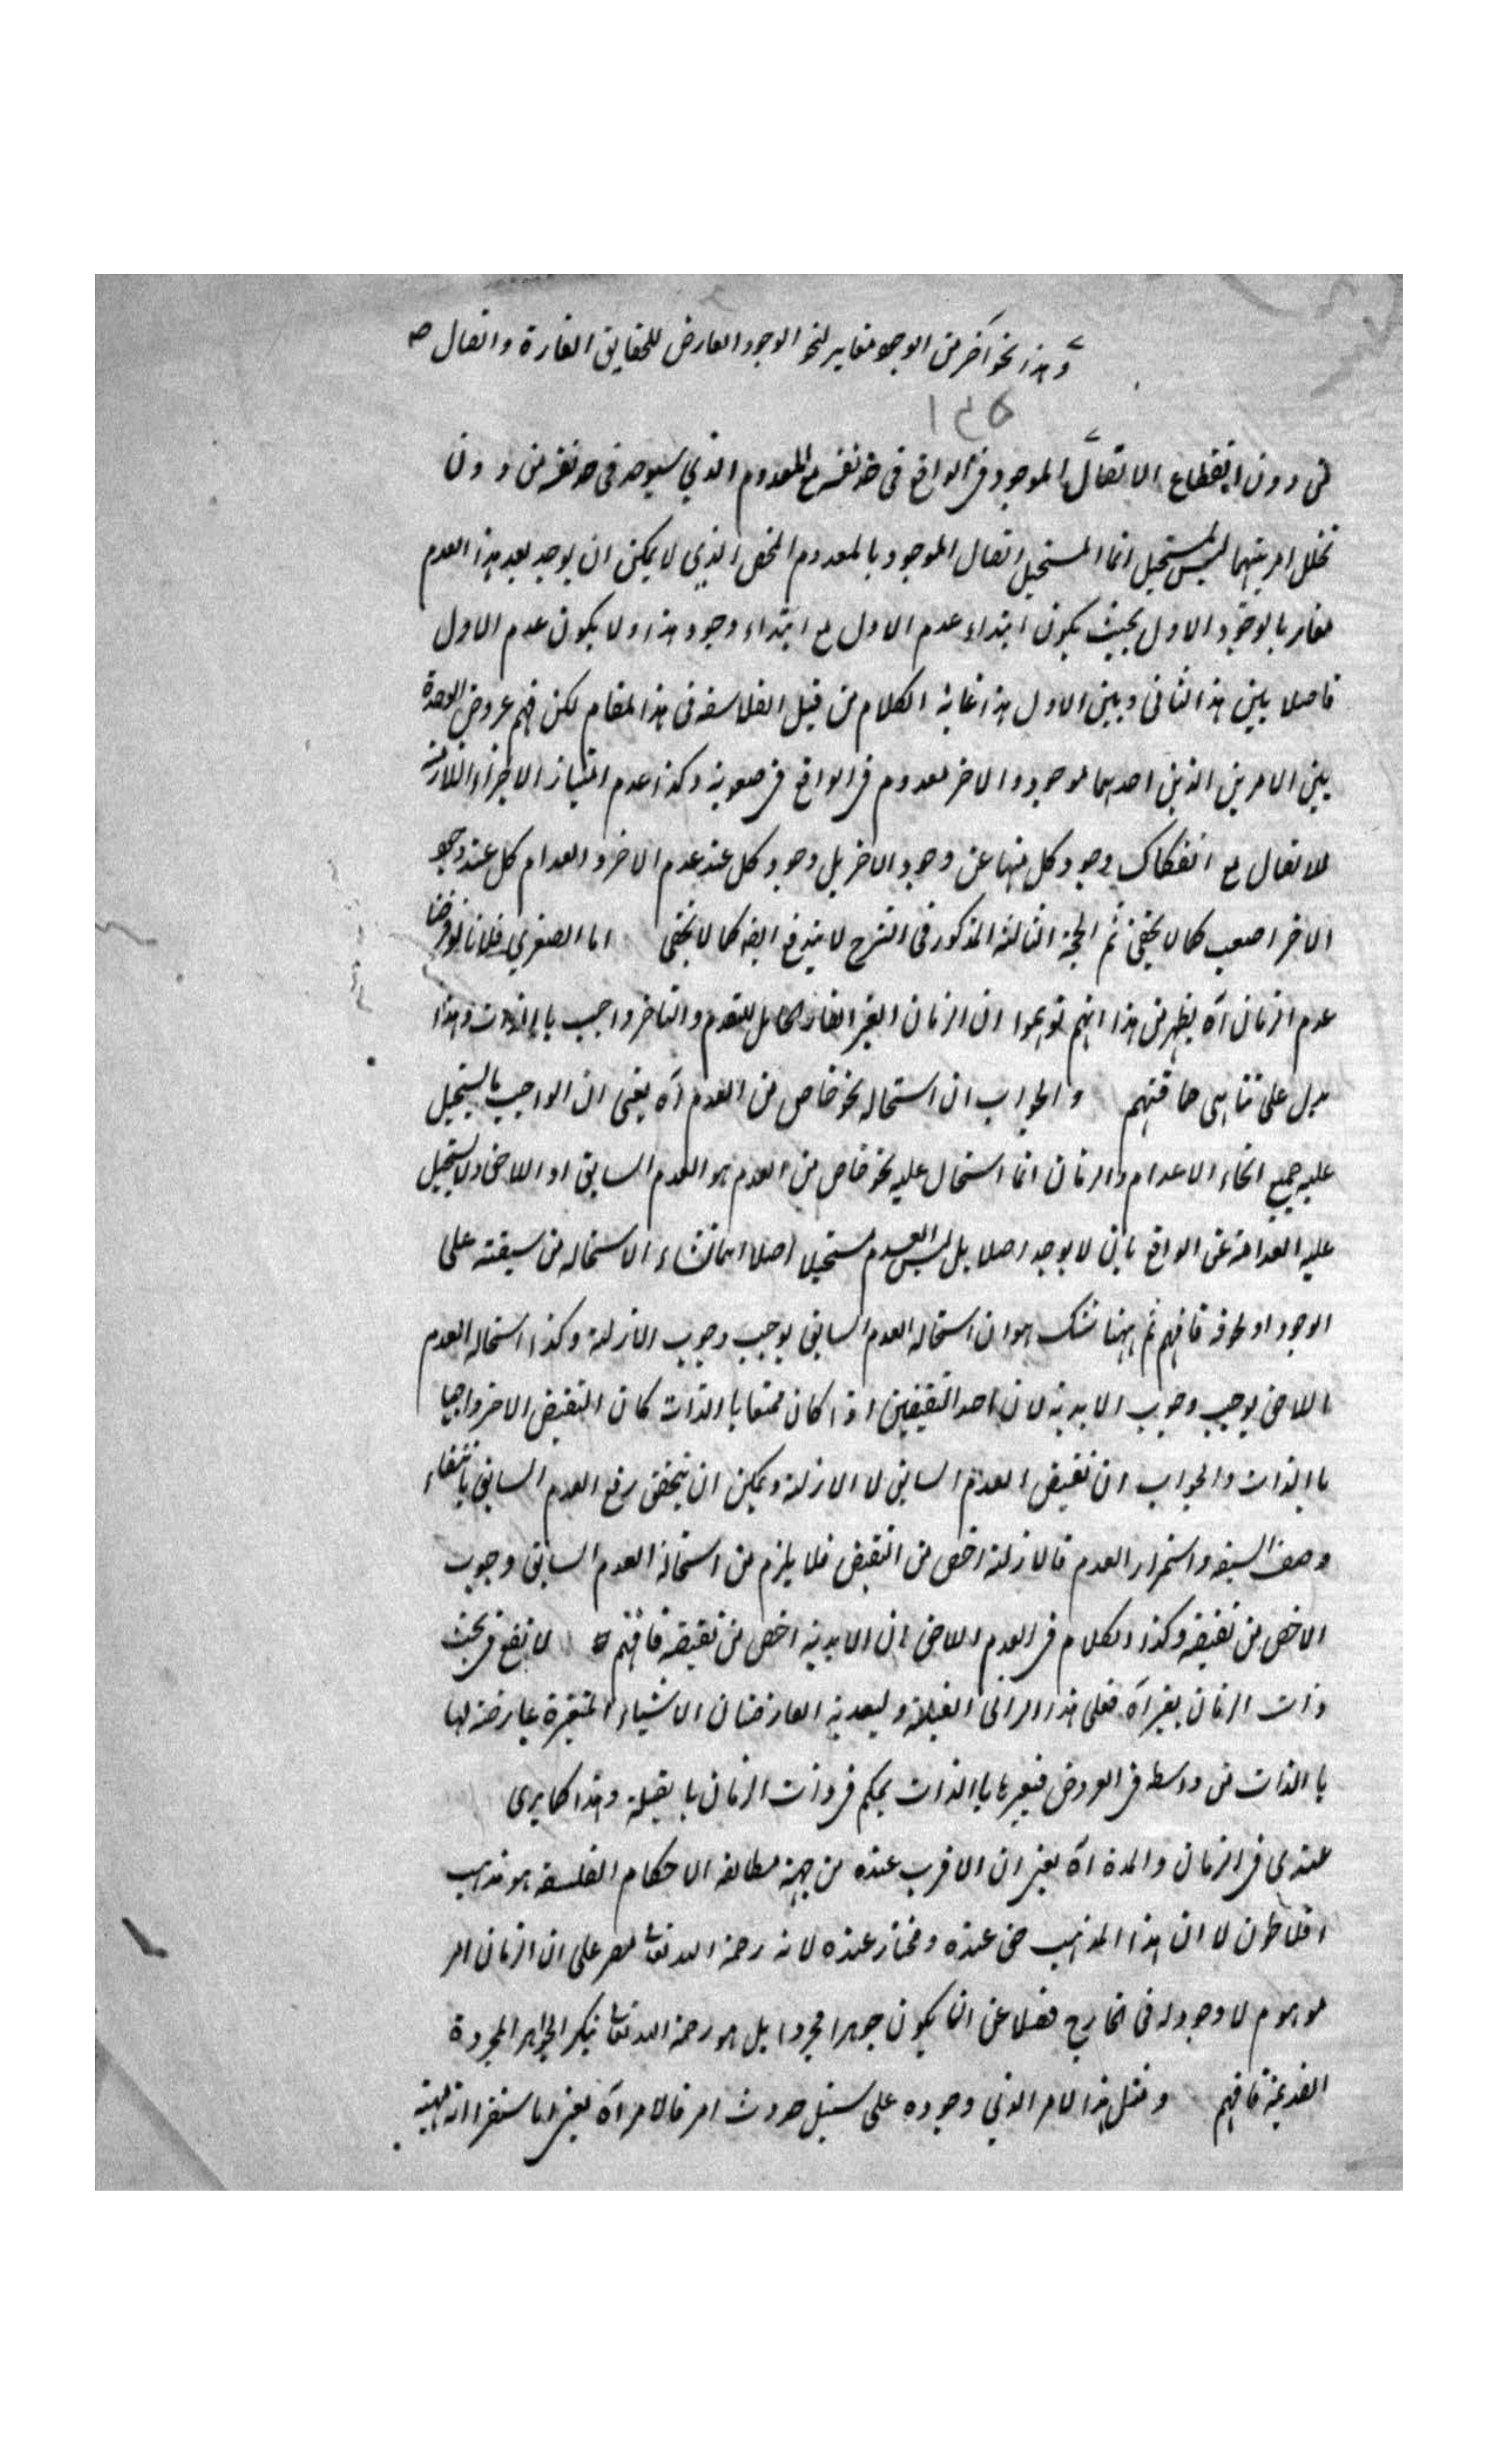 وهذا نحو آخر من الوجود مغاير لنحو الوجود العارض للحقايق القارة واتصال صح
١٣٥
من دون انقطاع الاتصال الموجود في الواقع في حد نفسه مع المعدوم الذي سيوجد في حد نفسه من دون
تخلل امر بينهما ليس بمستحيل انما المستحيل اتصال الموجود بالمعدوم المحض الذي لا يمكن ان يوجد بعد هذا العدم
بالوجود الاول بحيث يكون ابتداء عدم الاول مع ابتداء وجود هذا ولا يكون عدم الاول
فاصلا بين هذا الثاني وبين الاول هذا غاية الكلام من قبل الفلاسفة في هذا المقام لكن فهم عروض الوحدة
بين الامرين الذين احدهما موجود والاخر معدوم في الواقع في صعوبة وكذا عدم امتياز الاجزاء اللازمة
للاتصال مع انفكاك وجود كل منها عن وجود الاخر بل وجود كل عند عدم الاخر وانعدام كل عند وجود
الاخر اصعب كما لا يخفى ثم الحجة الثالثة المذكور في الشرح لا يندفع ايضه كما لا يخفى اما الصغري فلانا لو فرضنا
عدم الزمان آه يظهر من هذا انهم توهموا ان الزمان الغير القار للتقدم والتاخر واجب باالذات وهذا
يدل على تناهى حماقتهم والجواب ان استحالة نحو خاص من العدم آه يعنى ان الواجب ما يستحيل
عليه جميع انحاء الاعدام والزمان انما استحال عليه نحو خاص من العدم هو العدم السابق او اللاحق ولا يستحيل
عليه انعدامه عن الواقع بان لا يوجد اصلا بل ليس العدم مستحيلا اصلا انما نشاء الاستحالة من سبقته على
الوجود او لحوقه فافهم ثم ههنا شك هو ان استحالة العدم السابق يوجب وجوب الازلية وكذا استحالة العدم
اللاحق يوجب وجوب الابدية لان احد النقيضين اذا كان ممتنعا باالذات كان النقيض الاخر واجبا
باالذات والجواب ان نقيض العدم السابق لا الازلية ويمكن ان يتحقق رفع العدم السابق بانتفاء
وصف السبق واستمرار العدم فالازلية اخص من النقيض فلا يلزم من استحالة العدم السابق وجوب
الاخص من نقيضه وكذا الكلام في العدم اللاحق ان الابدية اخص من نقيضه فافهم لا تقع في بحث
ذات الزمان بغير آه فعلى هذا الراى القبلية والبعدية العارضتان الاشياء المتغيرة عارضة لها
باالذات من واسطه في العروض باالذات يحكم في ذات الزمان بالقبلية وهذا كما يرى
عندى في الزمان والمدة آه يعنى ان الاقرب عنده من جهة مطابقة الاحكام الفلسفة هو مذهب
افلاطون لا ان هذا المذهب حق عنده ومختار عنده لانه رحمة الله تعالى مصر على ان الزمان امر
موهوم لا وجود له في الخارج فضلا عن ان يكون جوهرا مجردا بل هو رحمة الله تعالى ينكر الجواهر المجردة
القديمة فافهم ومثل هذا الامر الذي وجوده على سبيل حدوث امر فالامر آه يعنى